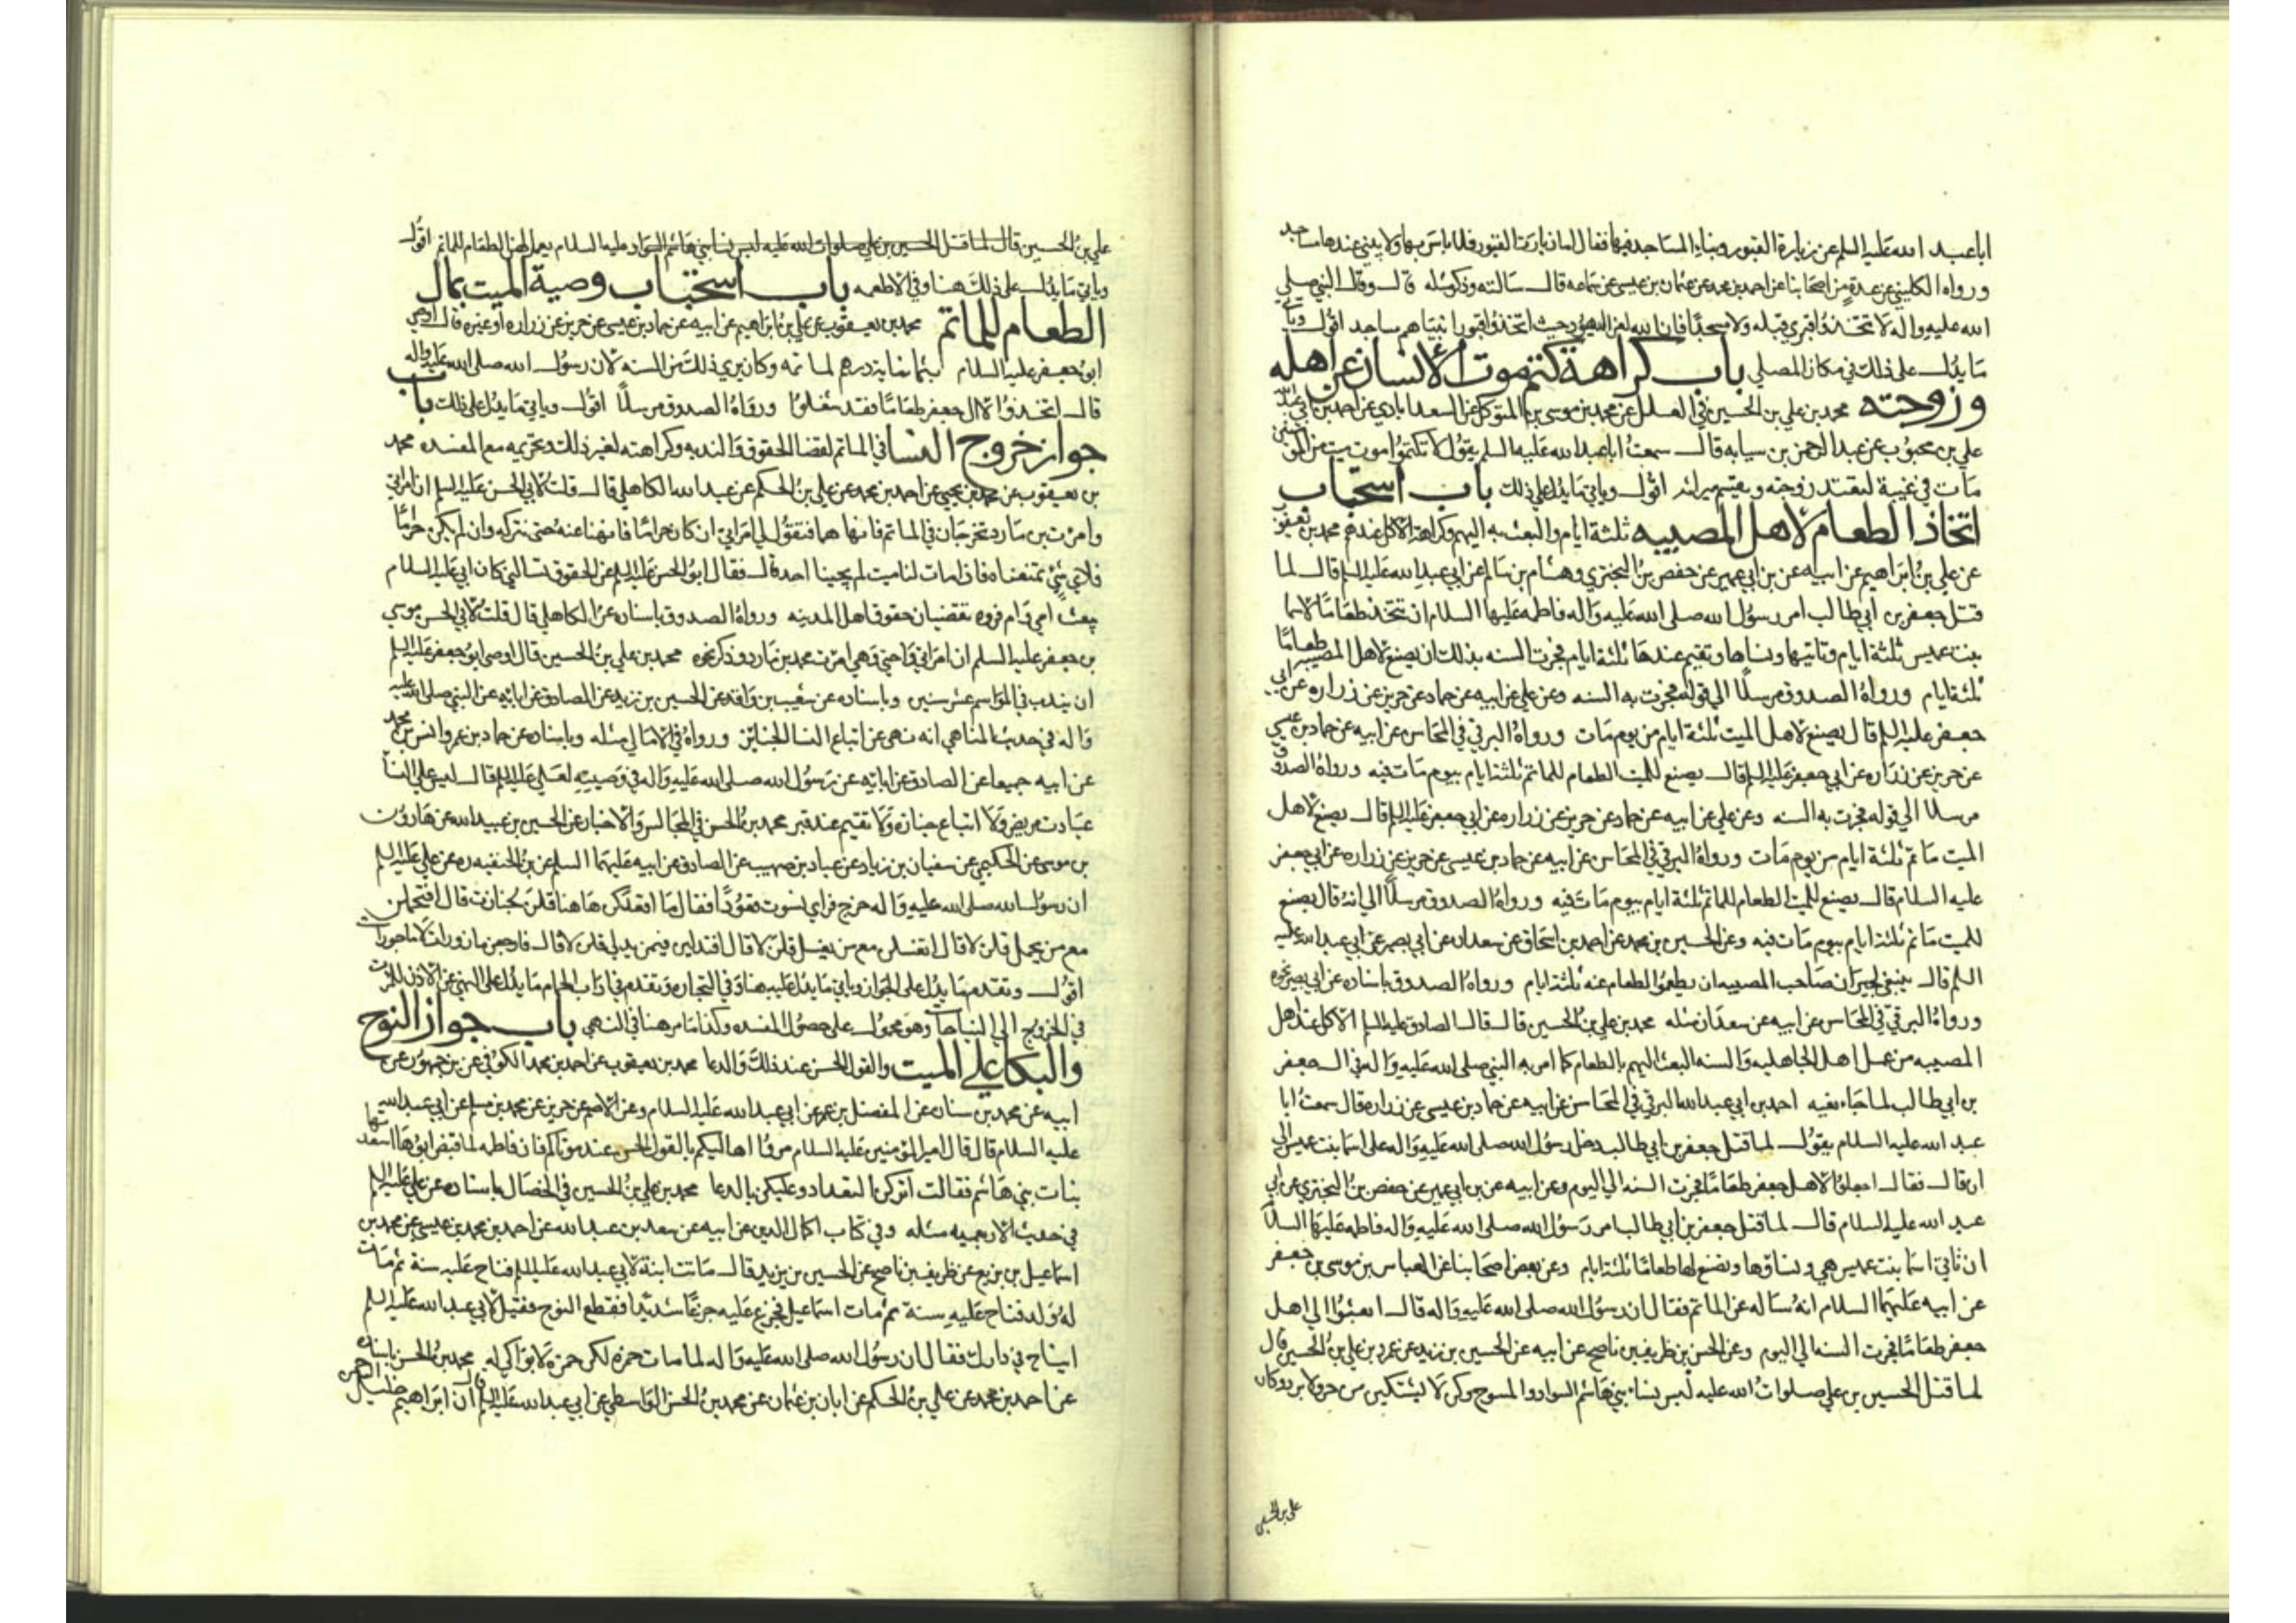 ابا عبد الله عليه السلم عن زيارة القبور وبناء المساجد فيها فقال اما زيارت القبور فلا باس بها ولا يبني عندها مساجد
ورواه الكليني عن عدة من اصحابنا عن احمد بن محمد عن عثمان بن عيسى عن سماعه قال سالته وذكر مثله قال وقال النبي صلي
الله عليه واله لا تتخذوا قبري قبله ولا مسجدا فان الله لعن اليهود حيث اتخذوا قبور انبيآهم مساجد اقول وياتي
ما يدل على ذلك في مكان المصلي باب كراهة كتم موت الانسان عن اهله
وزوجته محمد بن علي بن الحسين في العلل عن محمد بن موسى بن المتوكل عن السعدابادي عن احمد بن ابي عبد الله
علي بن محبوب عن عبد الرحمن بن سيابه قال سمعت ابا عبد الله عليه السلم يقول لا تكتموا موت ميت من المومنين
مات في غيبة لتعتد زوجته ويقسم ميراثه اقول وياتي ما يدل علي ذلك باب استحباب
اتخاذ الطعام لاهل المصيبه ثلثة ايام والبعث به اليهم وكراهة الاكل عندهم محمد بن يعقوب
عن علي بن ابراهيم عن ابيه عن بن ابي عمير عن حفص بن البختري وهشام بن سالم عن ابي عبد الله عليه السلم قال لما
قتل جعفر بن ابي طالب امر رسول الله صلى الله عليه واله فاطمه عليها السلام ان تتخذ طعاما لاسما
بنت عميس ثلثة ايام وتاتيها ونساها وتقيم عندها ثلثة ايام فجرت السنه بذلك ان يصنع لاهل المصيبه طعاما
ثلثة ايام ورواه الصدوق مرسلا الي قوله فجرت به السنه وعن علي عن ابيه عن حماد عن حريز عن زراره عن ابي
جعفر عليه السلم قال يصنع لاهل الميت ثلثة ايام من يوم مات ورواه البرقي في المحاسن عن ابيه عن حماد بن عيسي
عن حريز عن زراره عن ابي جعفر عليه السلم قال يصنع للميت الطعام للماتم ثلثة ايام بيوم مات فيه ورواه الصدوق
مرسلا الي قوله فجرت به السنه وعن علي عن ابيه عن حماد عن حريز عن زراره عن ابي جعفر عليه السلم قال يصنع لاهل
الميت ماتم ثلثة ايام من يوم مات ورواه البرقي في المحاسن عن ابيه عن حماد بن عيسى عن حريز عن زراره عن ابي جعفر
عليه السلام قال يصنع للميت الطعام للماتم ثلثة ايام بيوم مات فيه ورواه الصدوق مرسلا الي انه قال يصنع
للميت ماتم ثلثة ايام بيوم مات فيه وعن الحسين بن محمد عن احمد بن اسحاق عن سعدان عن ابي بصير عن ابي عبد الله عليه
السلم قال ينبغي لجيران صاحب المصيبه ان يطعموا الطعام عنه ثلثة ايام ورواه الصدوق باسناده عن ابي بصير نحوه
ورواه البرقي في المحاسن عن ابيه عن سعدان مثله محمد بن علي بن الحسين قال قال الصادق عليه السلم الاكل عند اهل
المصيبه من عمل اهل الجاهليه والسنه البعث اليهم بالطعام كما امر به النبي صلى الله عليه واله في ال جعفر
بن ابي طالب لما جاء نعيه احمد بن ابي عبد الله البرقي في المحاسن عن ابيه عن حماد بن عيسى عن زراره قال سمعت ابا
عبد الله عليه السلام يقول لما قتل جعفر بن ابي طالب دخل رسول الله صلى الله عليه واله على اسما بنت عميس الي
ان قال فقال اجعلوا لاهل جعفر طعاما فجرت السنه الي اليوم وعن ابيه عن بن ابي عمير عن حفص بن البختري عن ابي
عبد الله عليه السلام قال لما قتل جعفر بن ابي طالب امر رسول الله صلى الله عليه واله فاطمه عليها السلام
ان تاتي اسما بنت عميس هي ونساؤها وتصنع لها طعاما ثلثة ايام وعن بعض اصحابنا عن العباس بن موسى بن جعفر
عن ابيه عليهما السلام انه ساله عن الماتم فقال ان رسول الله صلى الله عليه واله قال ابعثوا الي اهل
جعفر طعاما فجرت السنه الي اليوم وعن الحسن بن ظريف بن ناصح عن ابيه عن الحسين بن زيد عن عمر بن علي بن الحسين قال
لما قتل الحسين بن علي صلوات الله عليه لبس نساء بني هاشم السواد والمسوح وكن لا يشتكين من حر ولا برد وكان
علي بن الحسين
علي بن الحسين قال لما قتل الحسين بن علي صلوات الله عليه لبس نسا بني هاشم السواد عليه السلام يعمل لهن الطعام للماتم اقول
وياتي ما يدل على ذلك هنا وفي الاطعمه باب استحباب وصية الميت بمال
الطعام للماتم محمد بن يعقوب عن علي بن ابراهيم عن ابيه عن حماد بن عيسى عن حريز عن زراره او غيره قال اوصي
ابو جعفر عليه السلام بثمانمايه درهم لماتمه وكان يري ذلك من السنه لان رسول الله صلى الله عليه واله
قال اتخذوا لال جعفر طعاما فقد شغلوا ورواه الصدوق مرسلا اقول وياتي ما يدل علي ذلك باب
جواز خروج النسا في الماتم لقضا الحقوق والندبه وكراهته لغير ذلك وتحريمه مع المفسده محمد
بن يعقوب عن محمد بن يحيي عن احمد بن محمد عن علي بن الحكم عن عبد الله الكاهلي قال قلت لابي الحسن عليه السلم ان امراتي
وامرئت بن مارد تخرجان في الماتم فانهاهما فتقول لي امراتي ان كان حراما فانهنا عنه حتى نتركه وان لم يكن حراما
فلاي شئ تمنعناه فاذا مات لنا ميت لم يجينا احد قال فقال ابو الحسن عليه السلم عن الحقوق تسالني كان ابي عليه السلام
يبعث امي وام فروه تقضيان حقوق اهل المدينه ورواه الصدوق باسناده عن الكاهلي قال قلت لابي الحسن موسي
بن جعفر عليه السلم ان امراتي واختي وهي امرئت محمد بن مارد وذكر نحوه محمد بن علي بن الحسين قال اوصى ابو جعفر عليه السلم
ان يندب في المواسم عشر سنين وباسناده عن شعيب بن واقد عن الحسين بن زيد عن الصادق عن ابائه عن النبي صلى الله عليه
واله في حديث المناهي انه نهى عن اتباع النسا الجنائز ورواه في الامالي مثله وباسناده عن حماد بن عمرو وانس بن محمد
عن ابيه جميعا عن الصادق عن ابائه عن رسول الله صلى الله عليه واله في وصيته لعلي عليه السلم قال ليس على النسا
عيادت مريض ولا اتباع جنازه ولا تقيم عند قبر محمد بن الحسن في المجالس والاخبار عن الحسين بن عبيد الله عن هارون
بن موسى عن الحكيمي عن سفيان بن زياد عن عباد بن صهيب عن الصادق عن ابيه عليهما السلم عن بن الحنفيه ره عن علي عليه السلم
ان رسول الله صلى الله عليه واله خرج فراي نسوت قعودا فقال ما اقعدكن هاهنا قلن لجنازت قال افتحملن
مع من يحمل قلن لا قال اتغسلن مع من يغسل قلن لا قال افتدلين فيمن يدلي قلن لا قال فارجعن مازورات لا ماجورات
اقول وتقدم ما يدل علي الجواز وياتي ما يدل عليه هنا وفي التجاره وتقدم في اداب الحمام ما يدل على النهي عن الاذن للمرئت
في الخروج الي النياحات وهو محمول على حصول المفسده وكذا ما مر هنا في النهي باب جواز النوح
والبكا علي الميت والقول الحسن عند ذلك والدعا محمد بن يعقوب عن احمد بن محمد الكوفي عن بن جمهور عن
ابيه عن محمد بن سنان عن المفضل بن عمر عن ابي عبد الله عليه السلام وعن الاصم عن حريز عن محمد بن مسلم عن ابي عبد الله
عليه السلام قال قال امير المؤمنين عليه السلام مروا اهاليكم بالقول الحسن عند موتاكم فان فاطمه لما قبض ابوها اسعدتها
بنات بني هاشم فقالت اتركن التعداد وعليكن بالدعا محمد بن علي بن الحسين في الخصال باسناده عن علي عليه السلم
في حديث الاربعميه مثله وفي كتاب اكمال الدين عن ابيه عن سعد بن عبد الله عن احمد بن محمد بن عيسى عن محمد بن
اسماعيل بن بزيع عن ظريف بن ناصح عن الحسين بن يزيد قال ماتت ابنة لابي عبد الله عليه السلم فناح عليه سنة ثم مات
له ولد فناح عليه سنة ثم مات اسماعيل فجزع عليه جزعا شديدا فقطع النوح فقيل لابي عبد الله عليه السلم
ايناح في دارك فقال ان رسول الله صلى الله عليه واله لما مات حمزه لكن حمزه لا بواكي له محمد بن الحسن باسناده
عن احمد بن محمد عن علي بن الحكم عن ابان بن عثمان عن محمد بن الحسن الواسطي عن ابي عبد الله عليه السلم قال ان ابراهيم خليل الرحمن